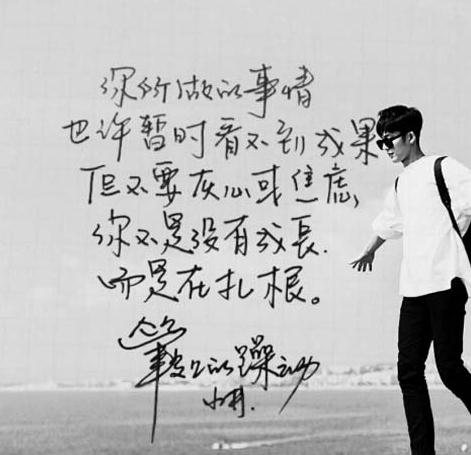 你所做的事情
也许暂时看不到成果
但不要灰心或焦虑,
你不是没有成長.
而是在扎根。
筆尖的躁动